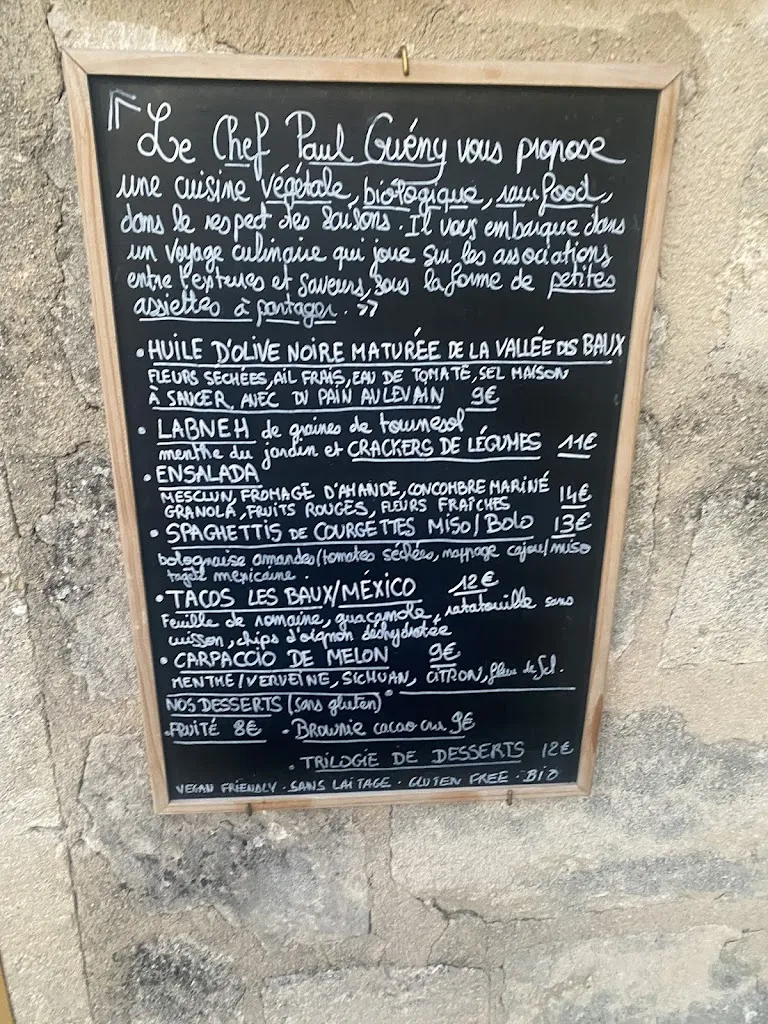 Le Chef Paul Guény vous propose
une cuisine végétale, biologique, raw food,
dans le respect des saisons. Il vous embarque dans
un voyage culinaire qui joue sur les associations
entre textures et saveurs, sous la forme de petites
assiettes à partager. »
• HUILE D'OLIVE NOIRE MATURÉE DE LA VALLÉE DES BAUX
FLEURS SÉCHÉES, AIL FRAIS, EAU DE TOMATE, SEL MAISON
À SAUCER AVEC DU PAIN AU LEVAIN 9€
• LABNEH de graines de tournesol
menthe du jardin et CRACKERS DE LÉGUMES 11€
• ENSALADA
MESCLUN, FROMAGE D'AMANDE, CONCOMBRE MARINÉ
GRANOLA, FRUITS ROUGES, FLEURS FRAÎCHES 14€
• SPAGHETTIS DE COURGETTES MISO/BOLO 13€
bolognaise amandes/tomates séchées, nappage cajou/miso
tagète mexicaine.
• TACOS LES BAUX/MÉXICO 12€
Feuille de romaine, guacamole, ratatouille sans
cuisson, chips d'oignon déshydratée
• CARPACCIO DE MELON 9€
MENTHE/VERVEINE, SICHUAN, CITRON, fleur de sel.
NOS DESSERTS (sans gluten)
• FRUITÉ 8€ • Brownie cacao cru 9€
• TRILOGIE DE DESSERTS 12€
VEGAN FRIENDLY • SANS LAITAGE • GLUTEN FREE • BIO